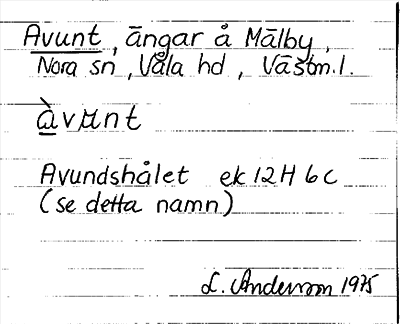 Avunt, ängar å Mälby,
Nora sn, Våla hd, Västm.l.
àvunt
Avundshålet ek 12H 6c
(se detta namn)
L. Anderson 1975